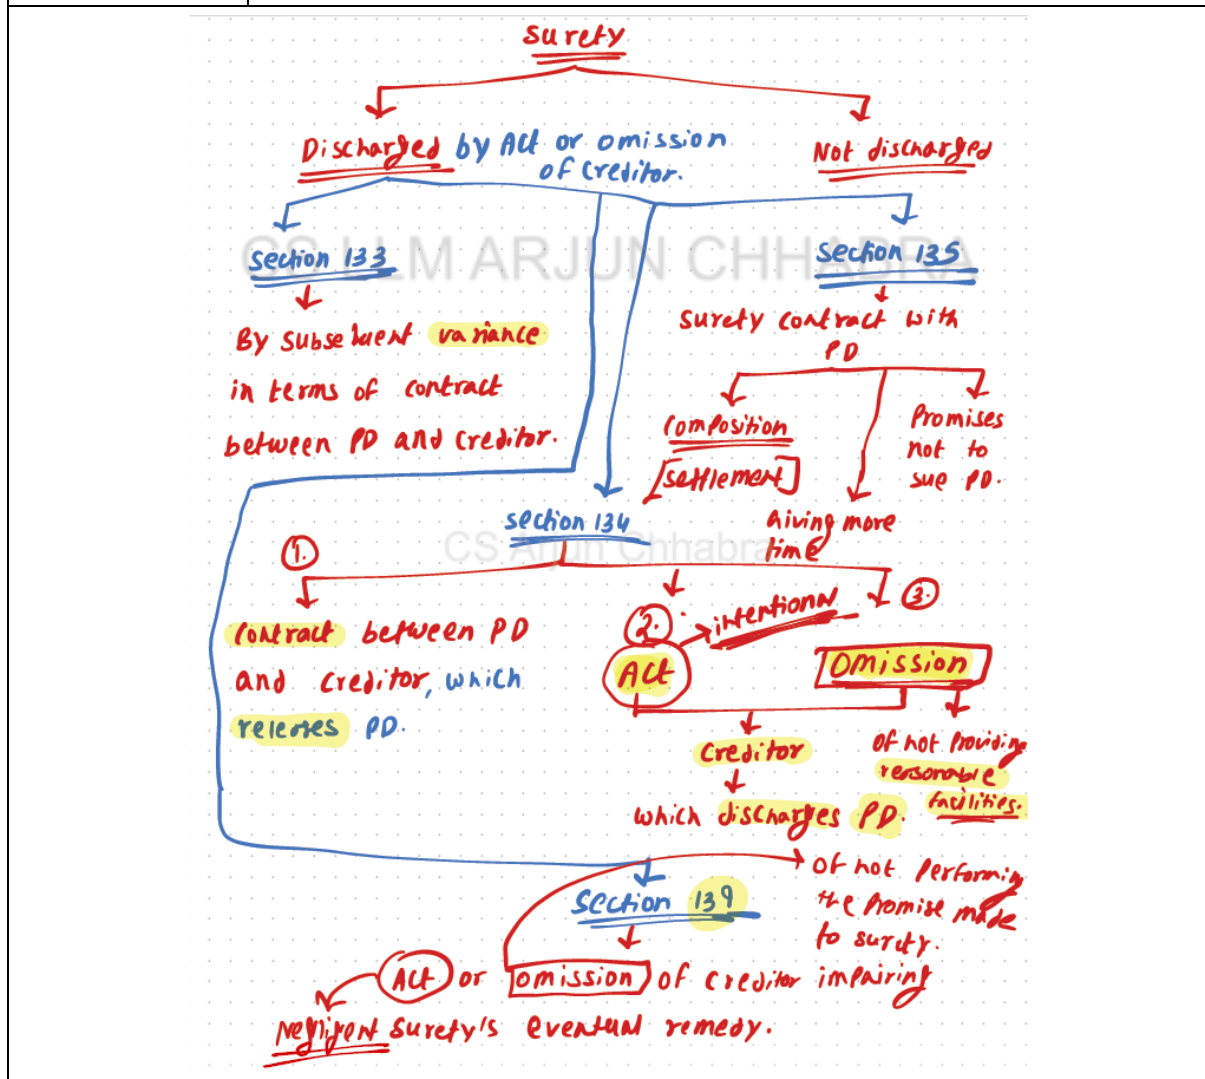 Surety
Discharged by Act or omission
of Creditor.
Not discharged
CS LLM ARJUN CHHABRA
Section 133
Section 135
By subsequent variance
in terms of contract
between PD and Creditor.
Surety contract with
PD
Composition
[settlement]
Giving more
time
Promises
not to
sue PD.
Section 134
CS Arjun Chhabra
1.
Contract between PD
and creditor, which
releases PD.
2.
intentional
Act
3.
Omission
Creditor
which discharges PD.
of not Providing
reasonable
facilities.
Section 139
of not Performing
the Promise made
to surety.
Act or omission of Creditor impairing
Negligent Surety's eventual remedy.